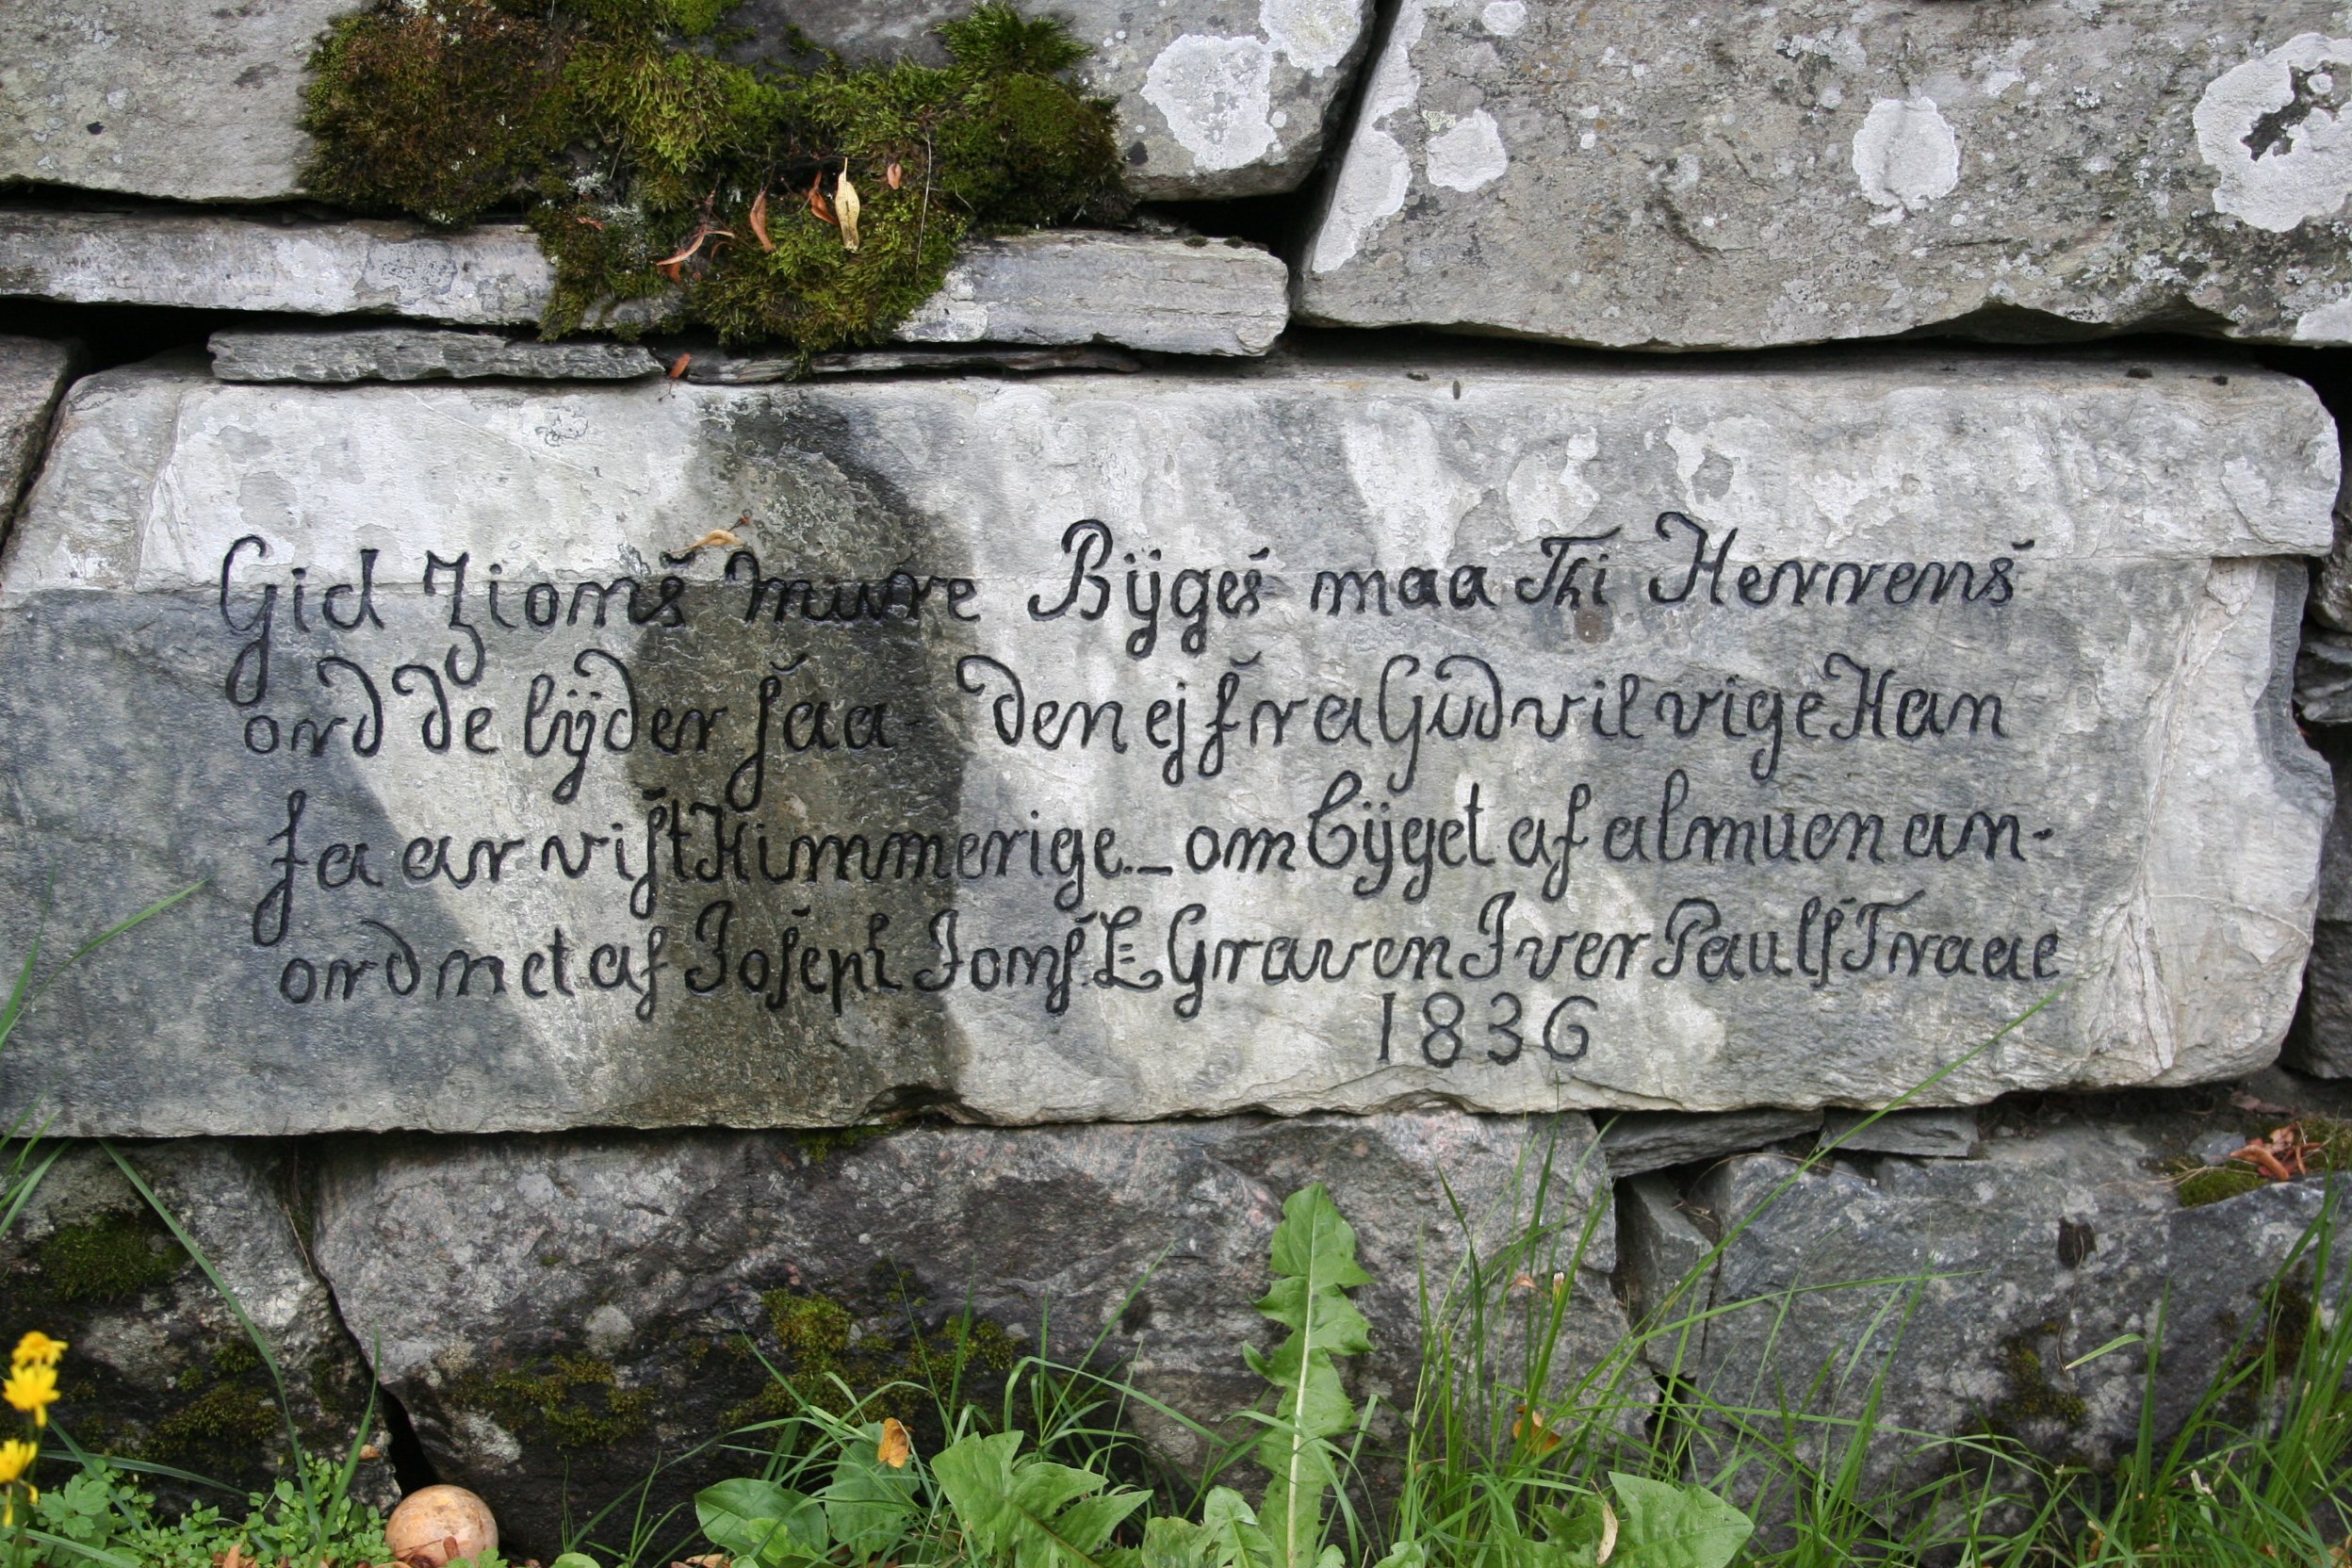 Gid Zions mure Bÿges maa Thi Herrens
ord de lÿder saa- den ej fra Gud vil vige Han
faar vist Himmerige._ om bÿget af almuen an-
ordnet af Joseph Jons. L. Graven Iver Pauls Traae
1836